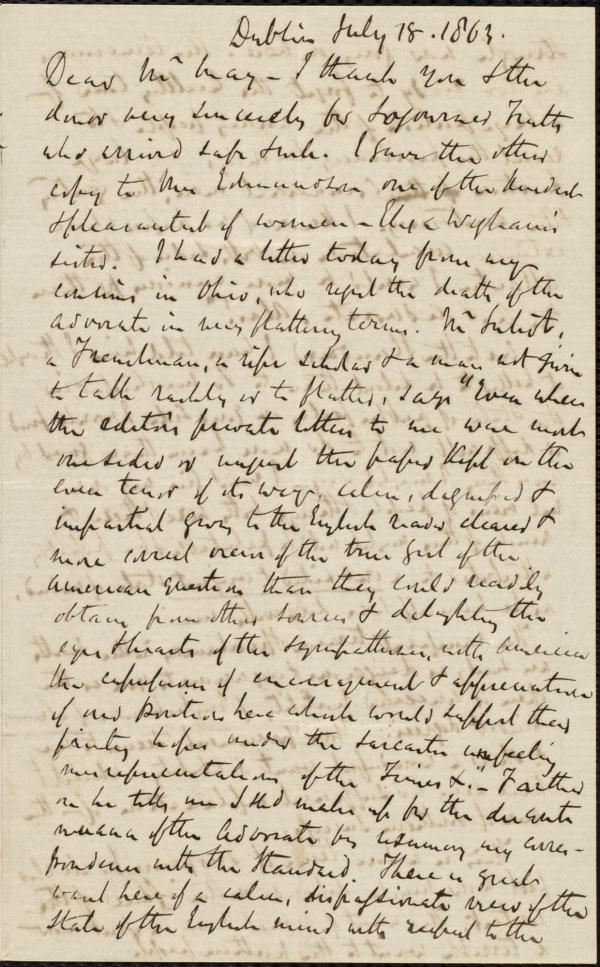 Dublin July 18. 1863.
Dear Mr May - I thank you & the
donor very sincerely for Sojourner Truth
who arrived safe & such. I gave the other
copy to Mrs Edmundson one of the kindest
& pleasantest of women - Eliza Wigham's
sister. I had a letter today from my
cousins in Ohio, who regret the death of the
Advocate in very flattering terms. Mr
a Frenchman, a ripe scholar & a man not given
to talk rashly or to flatter, says "Even when
the editor's private letters to me were most
onesided or unjust the paper kept on the
even tenor of its way, calm, dignified &
impartial giving to the English reader clearer &
more correct views of the true gist of the
American question than they could readily
obtain from other sources & delighting the
eyes & hearts of the sympathisers with America
the expression of encouragement & appreciation
of our position here which would support their
hopes under the sarcastic unfeeling
misrepresentations of the Times &." - Farther
on he tells me I shd make up for the
of the Advocate by resuming my corres-
pondence with the Standard. There is great
want here of a calm, dispassionate view of the
state of the English mind with respect to the